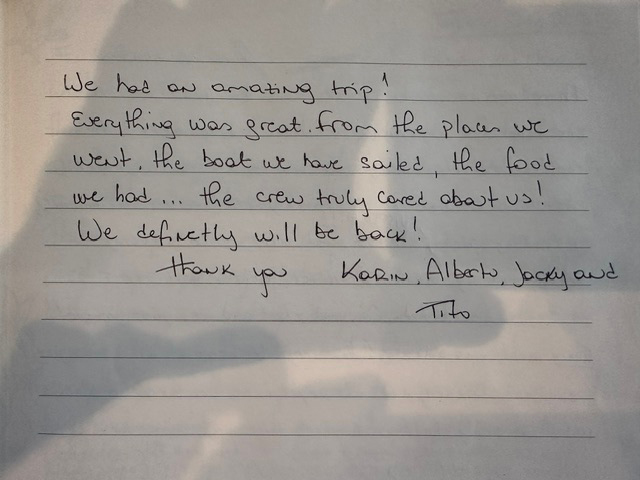 We had an amazing trip!
Everything was great. from the places we
went, the boat we have sailed, the food
we had... the crew truly cared about us!
We definetly will be back!
Thank you Karin, Alberto, Jacky and
Tito